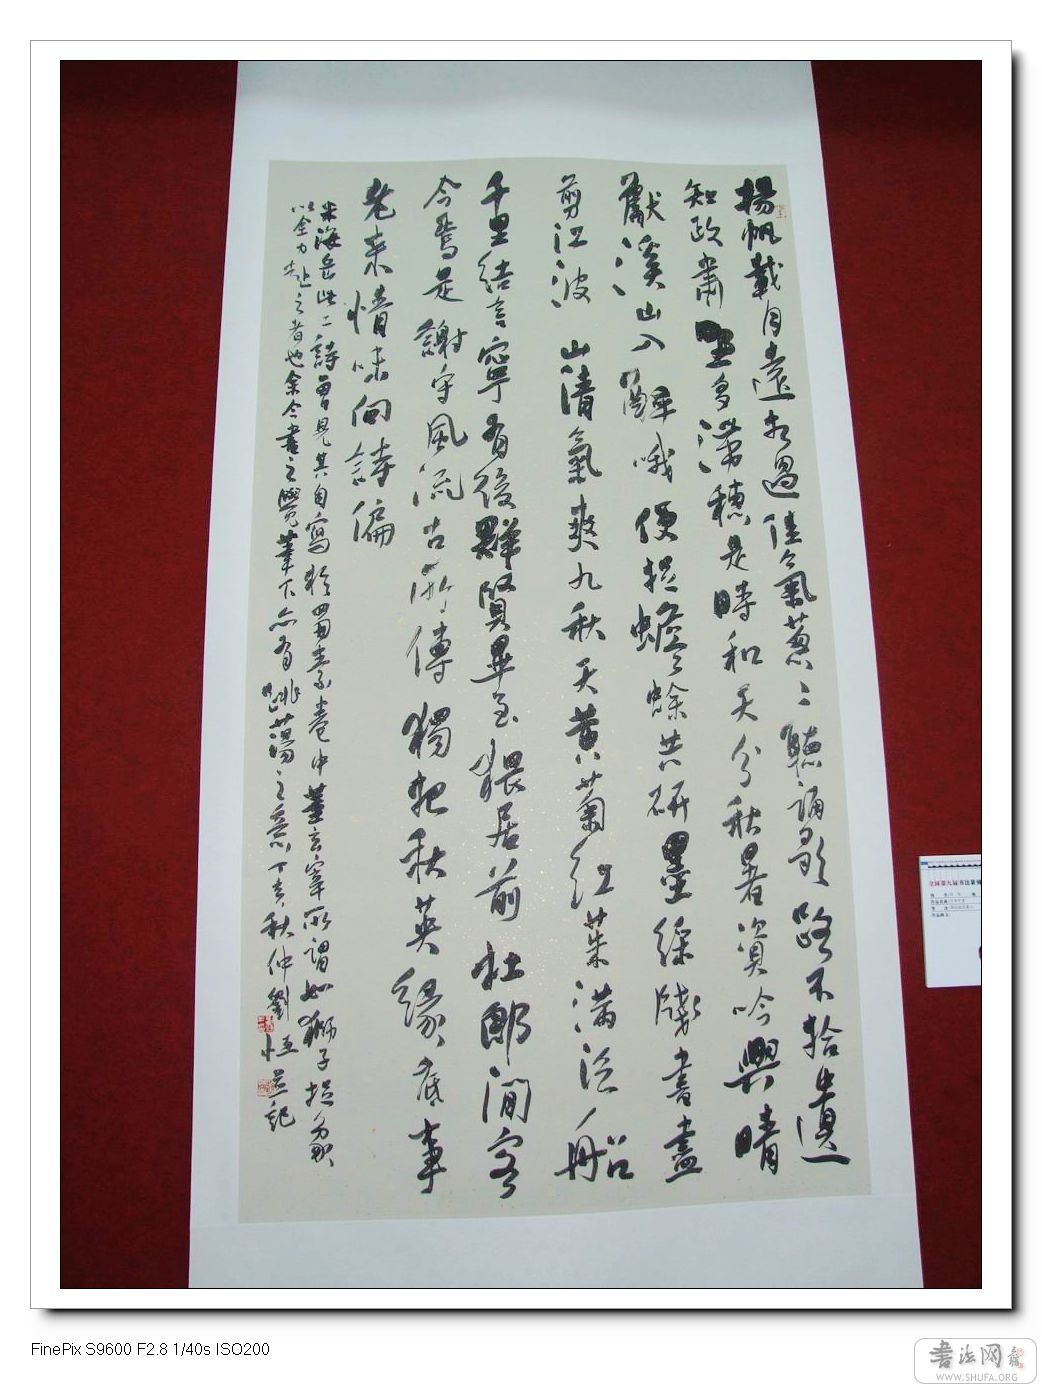 揚帆載月遠相過佳氣蔥〻聽誦歌路不拾遺
知政肅野多滯穗是時和天分秋暑資吟興晴
獻溪山入醉哦便捉蟾蜍共研墨綵牋書盡
剪江波 山清氣爽九秋天黃菊紅茱滿泛船
千里結言寧有後群賢畢至猥居前杜郎閒客
今焉是謝守風流古所傳獨把秋英緣底事
老來情味向詩偏
米海岳此二詩曾見其自寫於蜀素卷中董玄宰所謂如獅子捉象
以全力赴之者也余今書之覺筆下亦有跳蕩之意丁亥秋仲劉恒並記
全国第九届书法篆刻
FinePix S9600 F2.8 1/40s ISO200
書法网
WWW.SHUFA.ORG